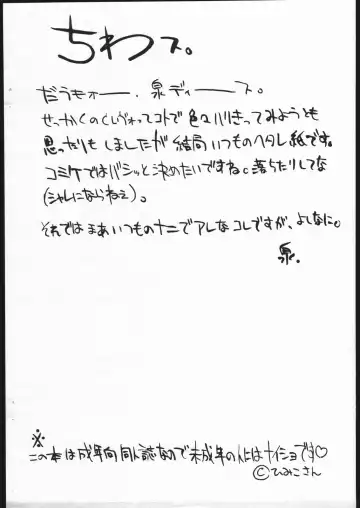 ちわス。
だうもォー ー．泉ディー ース。
せっかくのくじヴァってコトで色々バリきってみようとも
思ったりもしましたが結局いつものヘタレ紙です。
コミケではバシッと決めたいですね。落ちたりしてな
(シャレにならねぇ)。
それではまあいつものナニでアレなコレですが、よしなに。
泉.
※
この本は成年向同人誌なので未成年の人にはナイショです♡
©ひみこさん